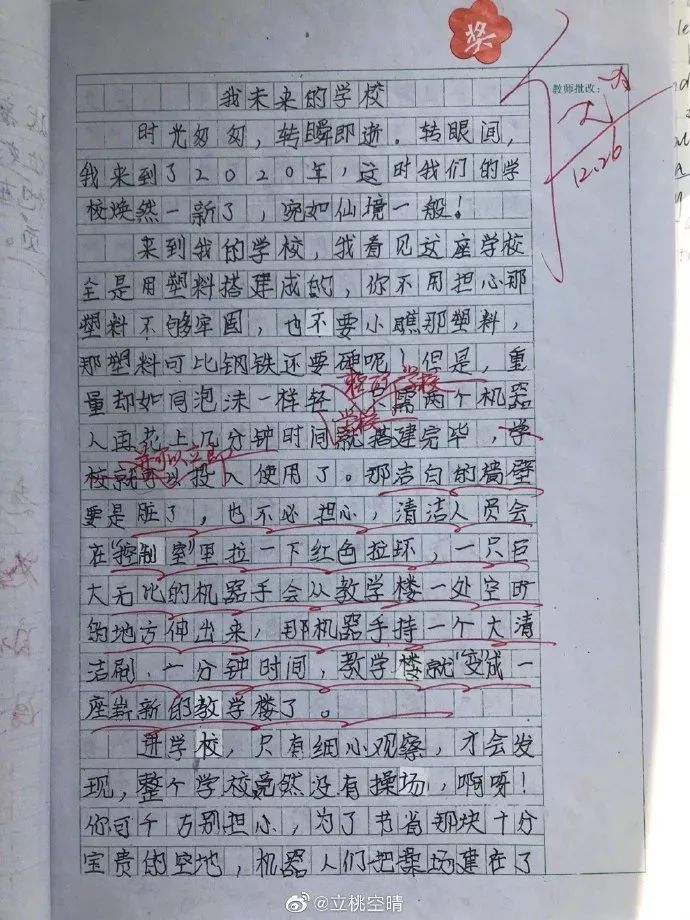 奖
教师批改:
12.26
我未来的学校
时光匆匆，转瞬即逝.转眼间，
我来到了2020年，这时我们的学
校焕然一新了，宛如仙境一般！
来到我的学校，我看见这座学校
全是用塑料搭建成的，你不用担心那
塑料不够牢固，也不要小瞧那塑料，
那塑料可比钢铁还要硬呢！但是，重
量却如同泡沫一样轻，只需两个机器
人再花上几分钟时间就搭建完毕，学
校就可以投入使用了。那洁白的墙壁
要是脏了，也不必担心，清洁人员会
在“控制室”里拉一下红色拉环，一只巨
大无比的机器手会从教学楼一处空旷
的地方伸出来，那机器手持一个大清
洁刷，一分钟时间，教学楼就“变”成一
座崭新的教学楼了。
进学校，只有细心观察，才会发
现，整个学校竟然没有操场，啊呀！
你可千万别担心，为了节省那块十分
宝贵的空地，机器人们把操场建在了
@立桃空晴